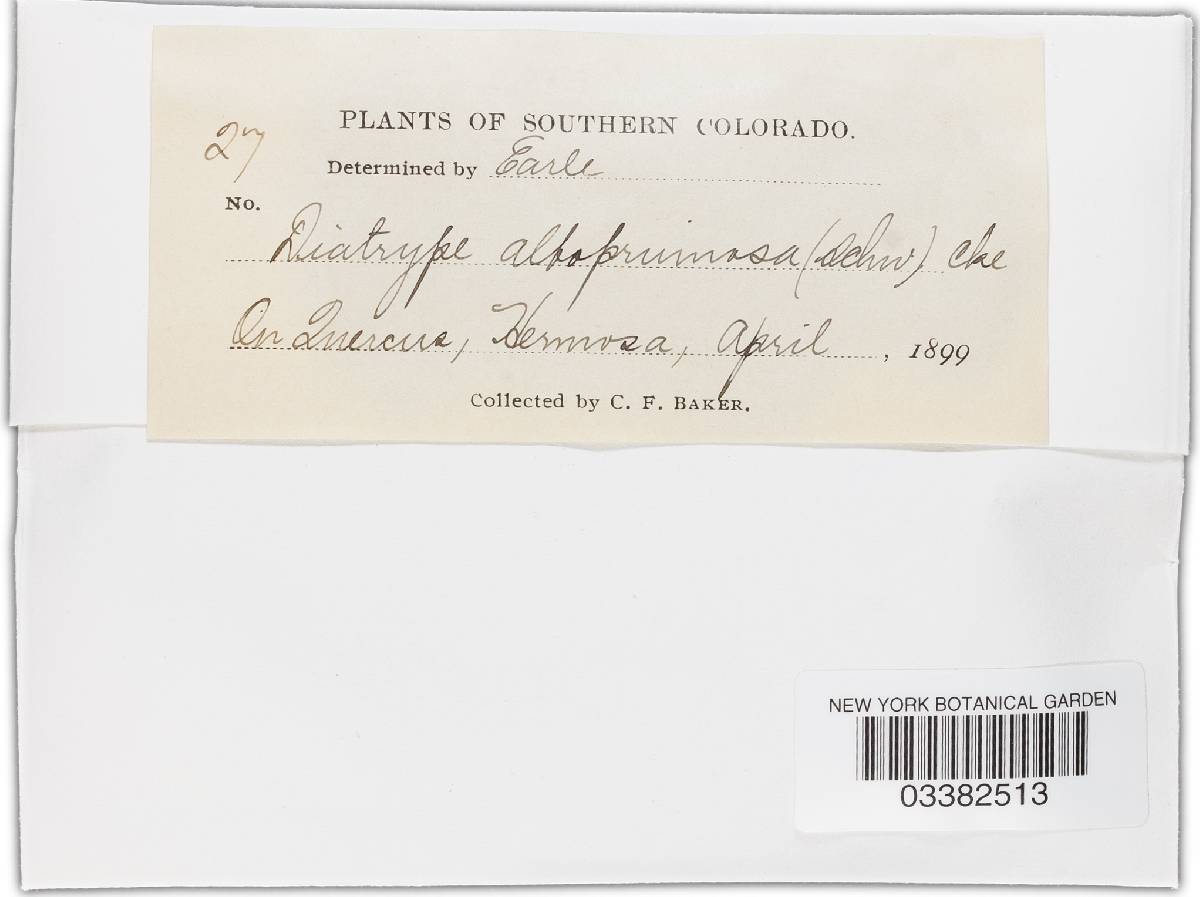 PLANTS OF SOUTHERN COLORADO.
27
Determined by Earle
No.
Diatrype albopruinosa (Schw) Cke
On Quercus, Hermosa, April, 1899
Collected by C. F. BAKER.
NEW YORK BOTANICAL GARDEN
03382513